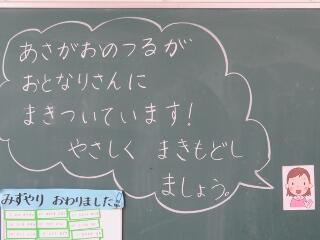 あさがおのつるが
おとなりさんに
まきついています!
やさしく まきもどし
ましょう。
みずやり おわりました!!